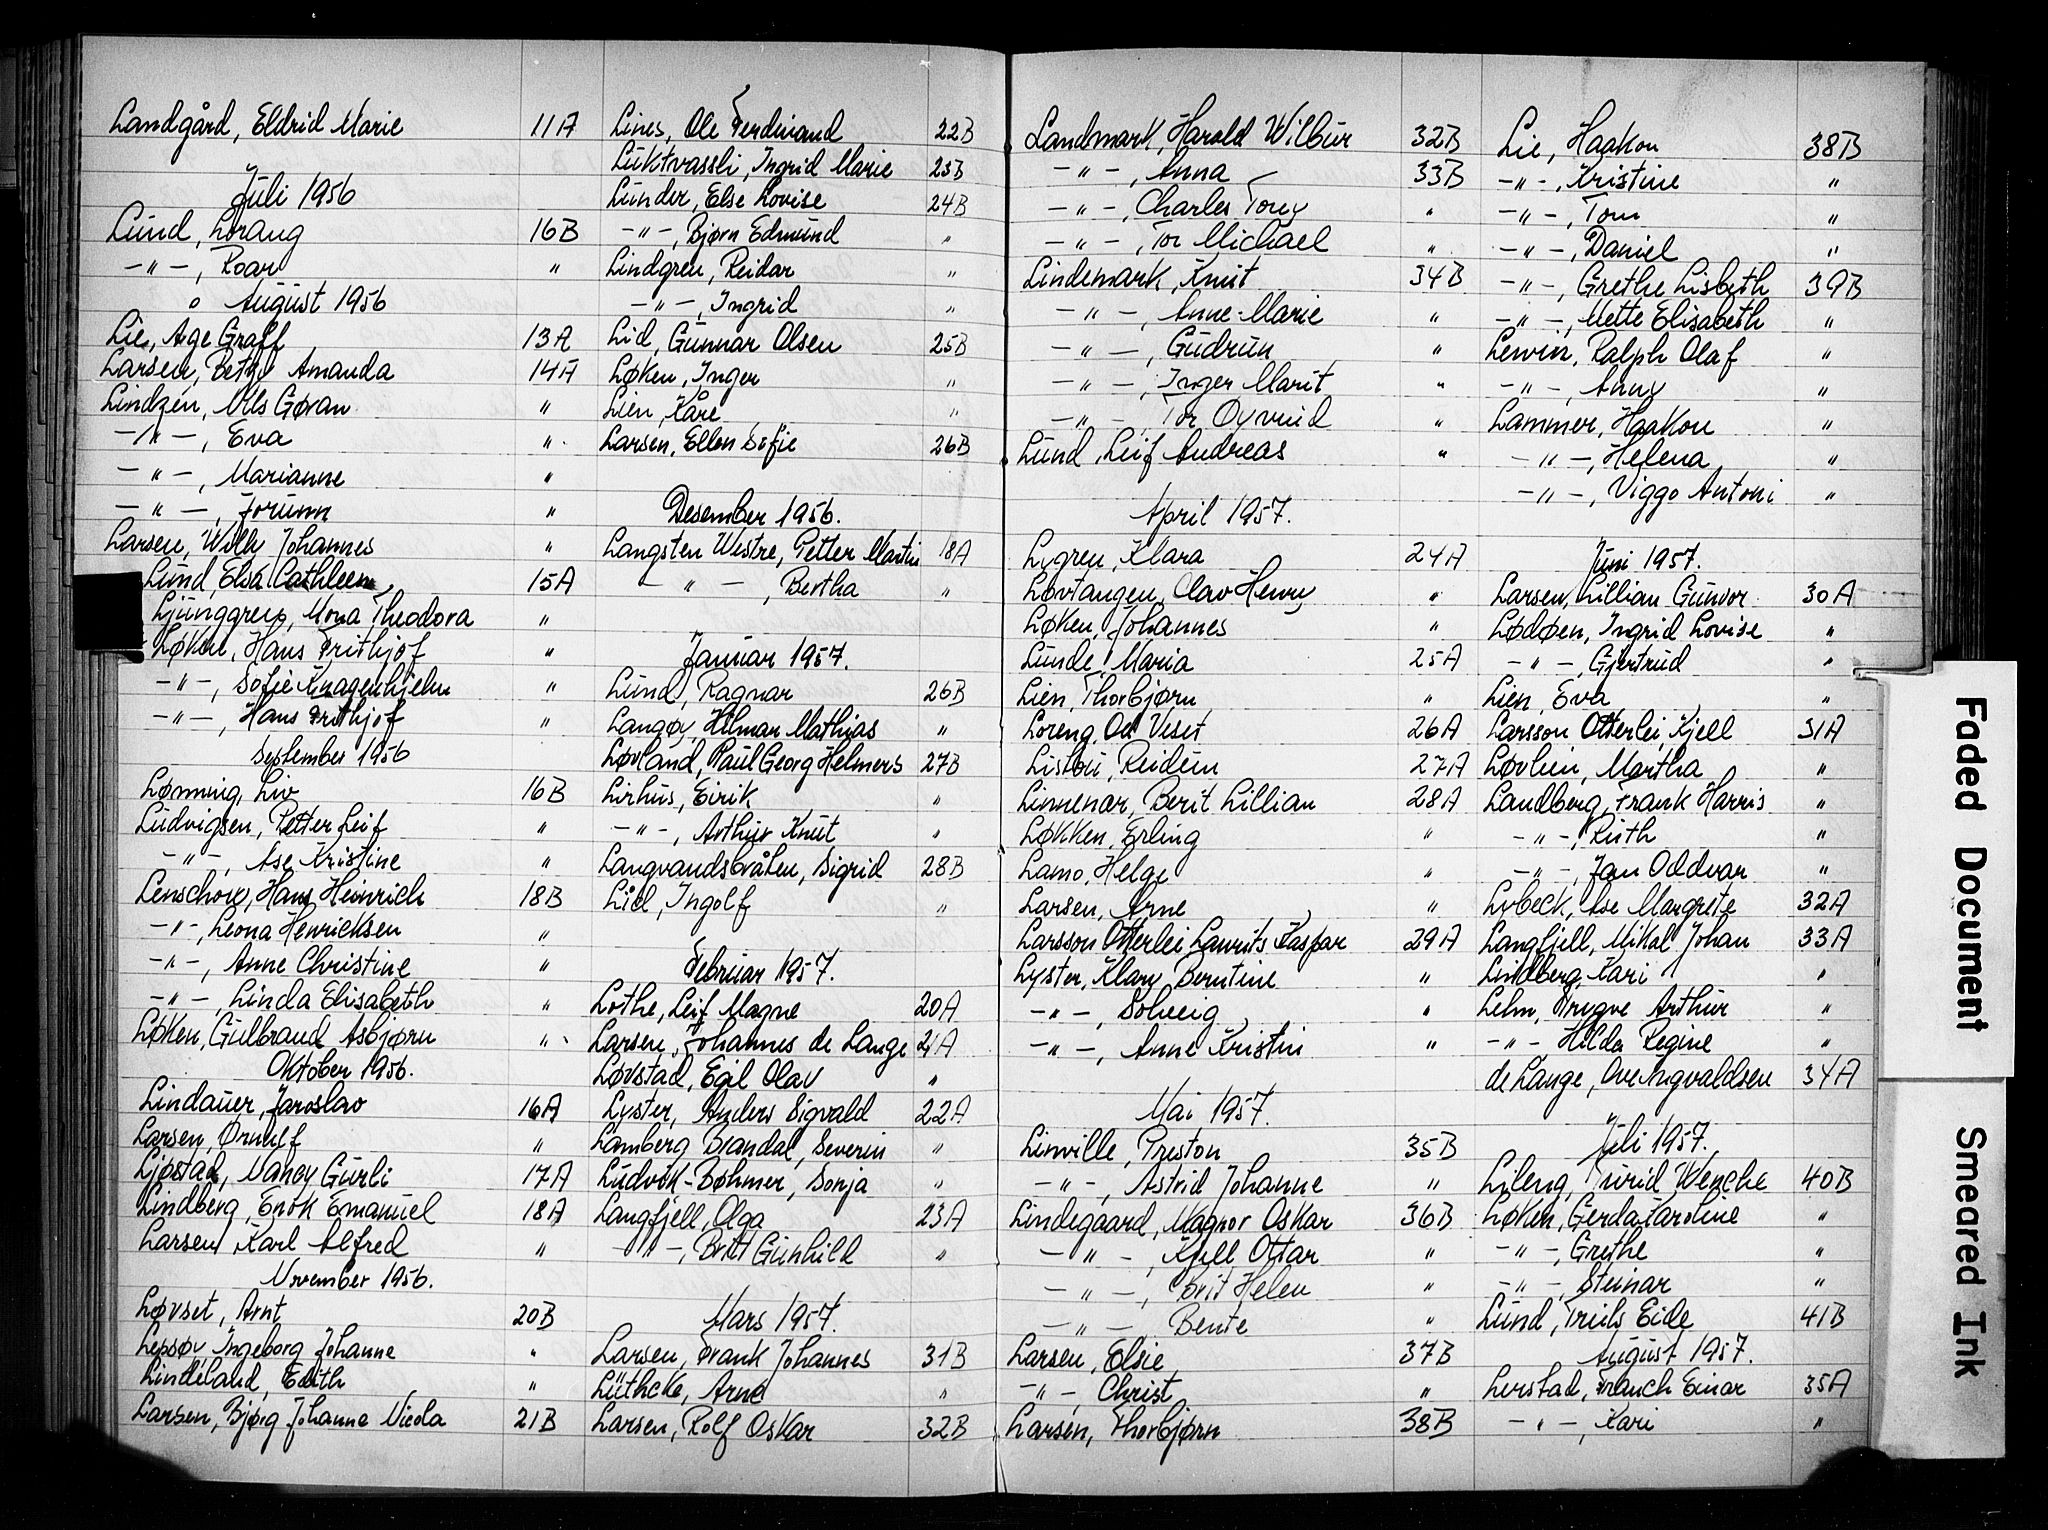 Landgård, Eldrid Marie 11A
Juli 1956
Lund, Lorang 16B
-"-, Roar "
August 1956
Lie, Åge Graff 13A
Larsen, Betzy Amanda 14A
Lindzén, Nils Gøran "
-"-, Eva "
-"-, Marianne "
-"-, Jorunn "
Larsen, Willy Johannes "
Lund, Elsa Cathleen 15A
Ljunggren, Mona Theodora "
Løken, Hans Frithjof "
-"-, Sofie Knagenhjelm "
-"-, Hans Frithjof "
September 1956
Lønning, Liv 16B
Ludvigsen, Petter Leif "
-"-, Åse Kristine "
Lenschow, Hans Heinrich 18B
-"-, Leona Henricksen "
-"-, Anne Christine "
-"-, Linda Elisabeth "
Løken, Gulbrand Asbjørn "
Oktober 1956.
Lindauer, Jaroslav 16A
Larsen, Ørnulf "
Ljøstad, Nancy Gurli 17A
Lindberg, Enok Emanuel 18A
Larsen, Karl Alfred "
November 1956.
Løvset, Arnt 20B
Lepsøy, Ingeborg Johanne "
Lindeland, Edith "
Larsen, Bjørg Johanne Nicola 21B
Lines, Ole Ferdinand 22B
Luktvassli, Ingrid Marie 23B
Lunder, Else Lovise 24B
-"-, Bjørn Edmund "
Lindgren, Reidar "
-"-, Ingrid "
Lid, Gunnar Olsen 25B
Løken, Inger "
Lien, Kåre "
Larsen, Ellen Sofie 26B
Desember 1956.
Langsten Westre, Petter Martin 18A
-"-, Bertha "
Januar 1957.
Lund, Ragnar 26B
Langøy, Hilmar Mathias "
Løvland, Paul Georg Helmers 27B
Lirhus, Eirik "
-"-, Arthur Knut "
Langvandsbråten, Sigrid 28B
Lid, Ingolf "
Februar 1957.
Lothe, Leif Magne 20A
Larsen, Johannes de Lange 21A
Løvstad, Egil Olav "
Lyster, Anders Sigvald 22A
Lamberg Brandal, Severin "
Ludvik-Bøhmer, Sonja "
Langfjell, Olga 23A
-"-, Britt Gunhild "
Mars 1957.
Larsen, Frank Johannes 31B
Lüthcke, Arne "
Larsen, Rolf Oskar 32B
Landmark, Harold Wilbur 32B
-"-, Anna 33B
-"-, Charles Tory "
-"-, Tor Michael "
Lindemark, Knut 34B
-"-, Anne-Marie "
-"-, Gudrun "
-"-, Inger Marit "
-"-, Tor Øyvind "
Lund, Leif Andreas "
April 1957.
Lygren, Klara 24A
Løvtangen, Olav Henry "
Løken, Johannes "
Lunde, Maria 25A
Lien, Thorbjørn "
Loreng, Od Veset 26A
Listou, Reidun 27A
Linnenar, Berit Lillian 28A
Løkken, Erling "
Lamo, Helge "
Larsen, Arne "
Larsson Otterlei Laurits Kaspar 29A
Lyster, Klary Berntine "
-"-, Solveig "
-"-, Anne Kristin "
Mai 1957.
Linville, Preston 35B
-"-, Astrid Johanne "
Lindegaard, Magnor Oskar 36B
-"-, Kjell Ottar "
-"-, Brit Helen "
-"-, Bente "
Larsen, Elsie 37B
-"-, Christ "
Larsen, Thorbjørn 38B
Lie, Haakon 38B
-"-, Kristine "
-"-, Tom "
-"-, Daniel "
-"-, Grethe Lisbeth 39B
-"-, Mette Elisabeth "
Lewin, Ralph Olaf "
-"-, Anny "
Lammer, Haakon "
-"-, Helena "
-"-, Viggo Antoni "
Juni 1957.
Larsen, Lillian Gunvor 30A
Lødøen, Ingrid Lovise "
-"-, Gjertrud "
Lien, Eva "
Larsson Otterlei, Kjell 31A
Løvlien, Martha "
Landberg, Frank Harris "
-"-, Ruth "
-"-, Jan Oddvar "
Lybeck, Åse Margrete 32A
Langfjell, Mikal Johan 33A
Lindberg, Kari "
Lehn, Trygve Arthur "
-"- Hilda Regine "
de Lange, Ove Ingvaldsen 34A
Juli 1957.
Lileng, Turid Wenche 40B
Løken, Gerda Karoline "
-"-, Grethe "
-"-, Steinar "
Lund, Truls Eide 41B
August 1957.
Lerstad, Franch Einar 35A
-"-, Kari "
Faded Document
Smeared Ink